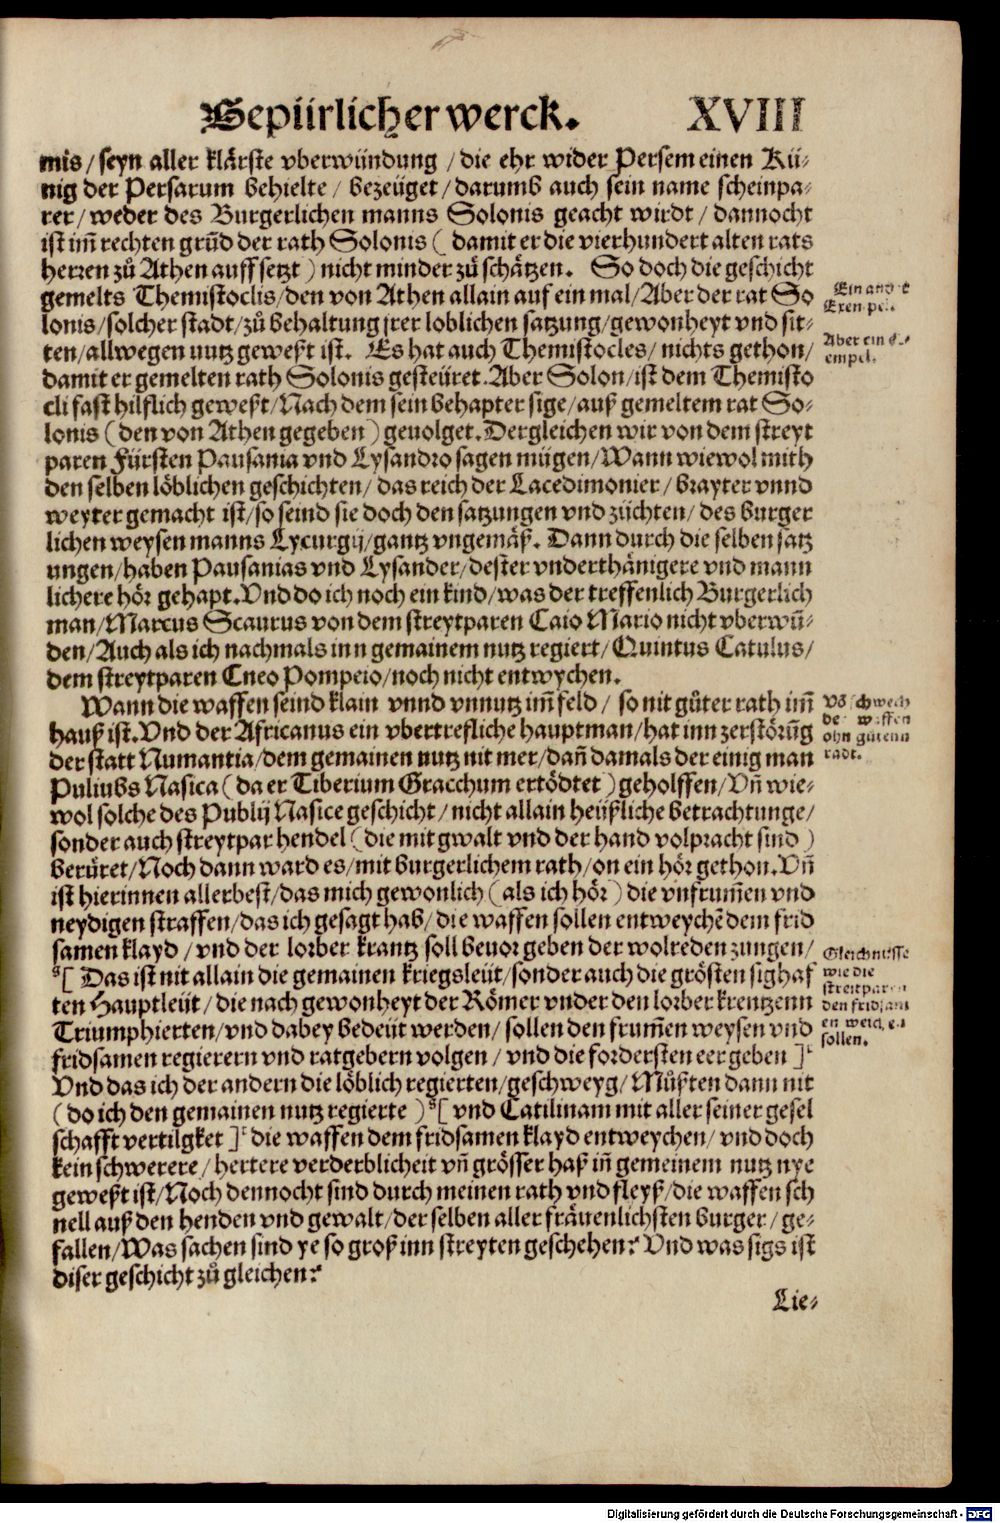 Gepürlicher werck. XVIII
mis/seyn aller klärste vberwündung/die ehr wider Persem einen Kü-
nig der Persarum behielte/bezeüget/darumb auch sein name scheinpa-
rer/weder des Burgerlichen manns Solonis geacht wirdt/dannocht
ist im̃ rechten grũd der rath Solonis (damit er die vierhundert alten rats
herren zů Athen auff setzt) nicht minder zů schätzen. So doch die geschicht
gemelts Themistoclis/den von Athen allain auf ein mal/Aber der rat So
lonis/solcher stadt/zů behaltung jrer loblichen satzung/gewonheyt vnd sit-
ten/allwegen nutz geweßt ist. Es hat auch Themistocles/nichts gethon/
damit er gemelten rath Solonis gesteüret. Aber Solon/ist dem Themisto
cli fast hilflich geweßt/Nach dem sein behapter sige/auß gemeltem rat So-
lonis (den von Athen gegeben) geuolget. Dergleichen wir von dem streyt
paren Fürsten Pausania vnd Lysandro sagen mügen/Wann wiewol mith
den selben löblichen geschichten/das reich der Lacedimonier/brayter vnnd
weyter gemacht ist/so seind sie doch den satzungen vnd züchten/des burger
lichen weysen manns Lycurgij/gantz vngemäß. Dann durch die selben satz
ungen/haben Pausanias vnd Lysander/dester vnderthänigere vnd mann
lichere hör gehapt. Vnd do ich noch ein kind/was der treffenlich Burgerlich
man/Marcus Scaurus von dem streytparen Caio Mario nicht vberwũ-
den/Auch als ich nachmals inn gemainem nutz regiert/Quintus Catulus/
dem streytparen Cneo Pompeio/noch nicht entwychen.
Wann die waffen seind klain vnnd vnnutz im̃ feld/so nit gůter rath im̃
hauß ist. Vnd der Africanus ein vbertrefliche hauptman/hat inn zerstörũg
der statt Numantia/dem gemainen nutz nit mer/dañ damals der einig man
Puliubs Nasica (da er Tiberium Gracchum ertödtet) geholffen/Vñ wie-
wol solche des Publij Nasice geschicht/nicht allain heüßliche betrachtunge/
sonder auch streytpar hendel (die mit gwalt vnd der hand volpracht sind)
berüret/Noch dann ward es/mit burgerlichem rath/on ein hör gethon. Vñ
ist hierinnen allerbest/das mich gewonlich (als ich hör) die vnfrum̃en vnd
neydigen straffen/das ich gesagt hab/die waffen sollen entweychẽ dem frid
samen klayd/vnd der lorber krantz soll beuor geben der wolreden zungen/
[Das ist nit allain die gemainen kriegsleüt/sonder auch die grösten sighaf
ten Hauptleüt/die nach gewonheyt der Römer vnder den lorber krentzenn
Triumphierten/vnd dabey bedeüt werden/sollen den frum̃en weysen vnd
fridsamen regierern vnd ratgebern volgen/vnd die fordersten eer geben]
Vnd das ich der andern die löblich regierten/geschweyg/Můßten dann nit
(do ich den gemainen nutz regierte) [vnd Catilinam mit aller seiner gesel
schafft vertilgket] die waffen dem fridsamen klayd entweychen/vnd doch
kein schwerere/hertere verderblicheit vñ grösser haß iñ gemeinem nutz nye
geweßt ist/Noch dennocht sind durch meinen rath vnd fleyß/die waffen sch
nell auß den henden vnd gewalt/der selben aller fräuenlichsten burger/ge-
fallen/Was sachen sind ye so groß inn streyten geschehen? Vnd was sigs ist
diser geschicht zů gleichen?
Lie-
Ein
Exempel.
Aber ein
empel.
waffen
ohn gůtenn
radt.
Gleichnusse
wie die
streitparen
den fridsam
sollen.
Digitalisierung gefördert durch die Deutsche Forschungsgemeinschaft - DFG